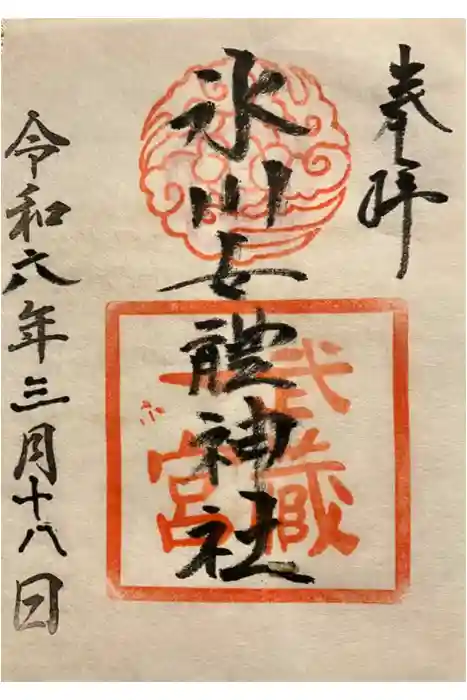 奉拝
氷川女體神社
武蔵
一宮
令和六年三月十八日